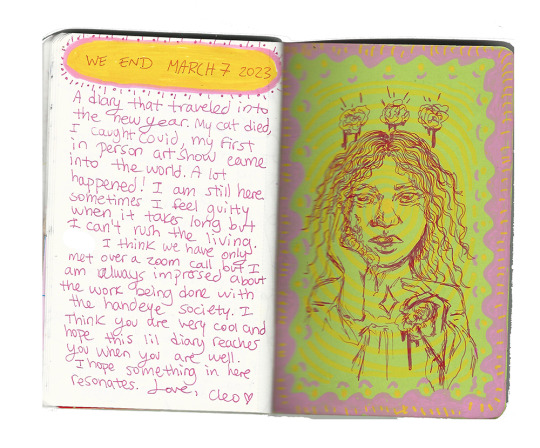 WE END MARCH 7 2023
A diary that traveled into
the new year. My cat died,
I caught Covid, my first
in person art show came
into the world. A lot
happened! I am still here
sometimes I feel guilty
when it takes long but
I can't rush the living.
I think we have only
met over a zoom call but I
am always impressed about
the work being done with
the handeye society. I
Think you are very cool and
hope this lil diary reaches
you when you are well.
I hope something in here
resonates. Love, Cleo♡